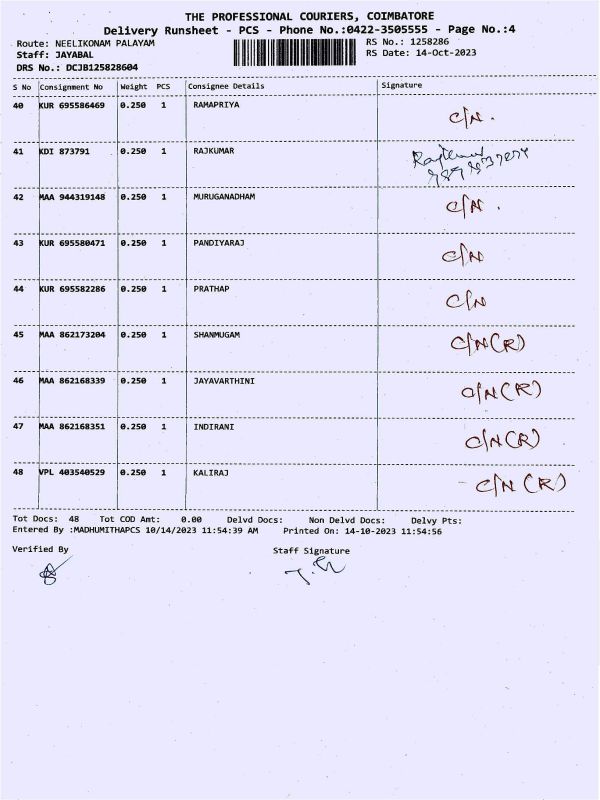 THE PROFESSIONAL COURIERS, COIMBATORE
Delivery Runsheet - PCS - Phone No.:0422-3505555 - Page No.:4
Route: NEELIKONAM PALAYAM RS No.: 1258286
Staff: JAYABAL RS Date: 14-Oct-2023
DRS No.: DCJB125828604
S No Consignment No Weight PCS Consignee Details Signature
40 KUR 695586469 0.250 1 RAMAPRIYA C/N.
41 KDI 873791 0.250 1 RAJKUMAR Rajkumar
42 MAA 944319148 0.250 1 MURUGANADHAM C/N.
43 KUR 695580471 0.250 1 PANDIYARAJ C/N
44 KUR 695582286 0.250 1 PRATHAP C/N
45 MAA 862173204 0.250 1 SHANMUGAM C/N(R)
46 MAA 862168339 0.250 1 JAYAVARTHINI C/N(R)
47 MAA 862168351 0.250 1 INDIRANI C/N(R)
48 VPL 403540529 0.250 1 KALIRAJ - C/N (R)
Tot Docs: 48 Tot COD Amt: 0.00 Delvd Docs: Non Delvd Docs: Delvy Pts:
Entered By :MADHUMITHAPCS 10/14/2023 11:54:39 AM Printed On: 14-10-2023 11:54:56
Verified By Staff Signature